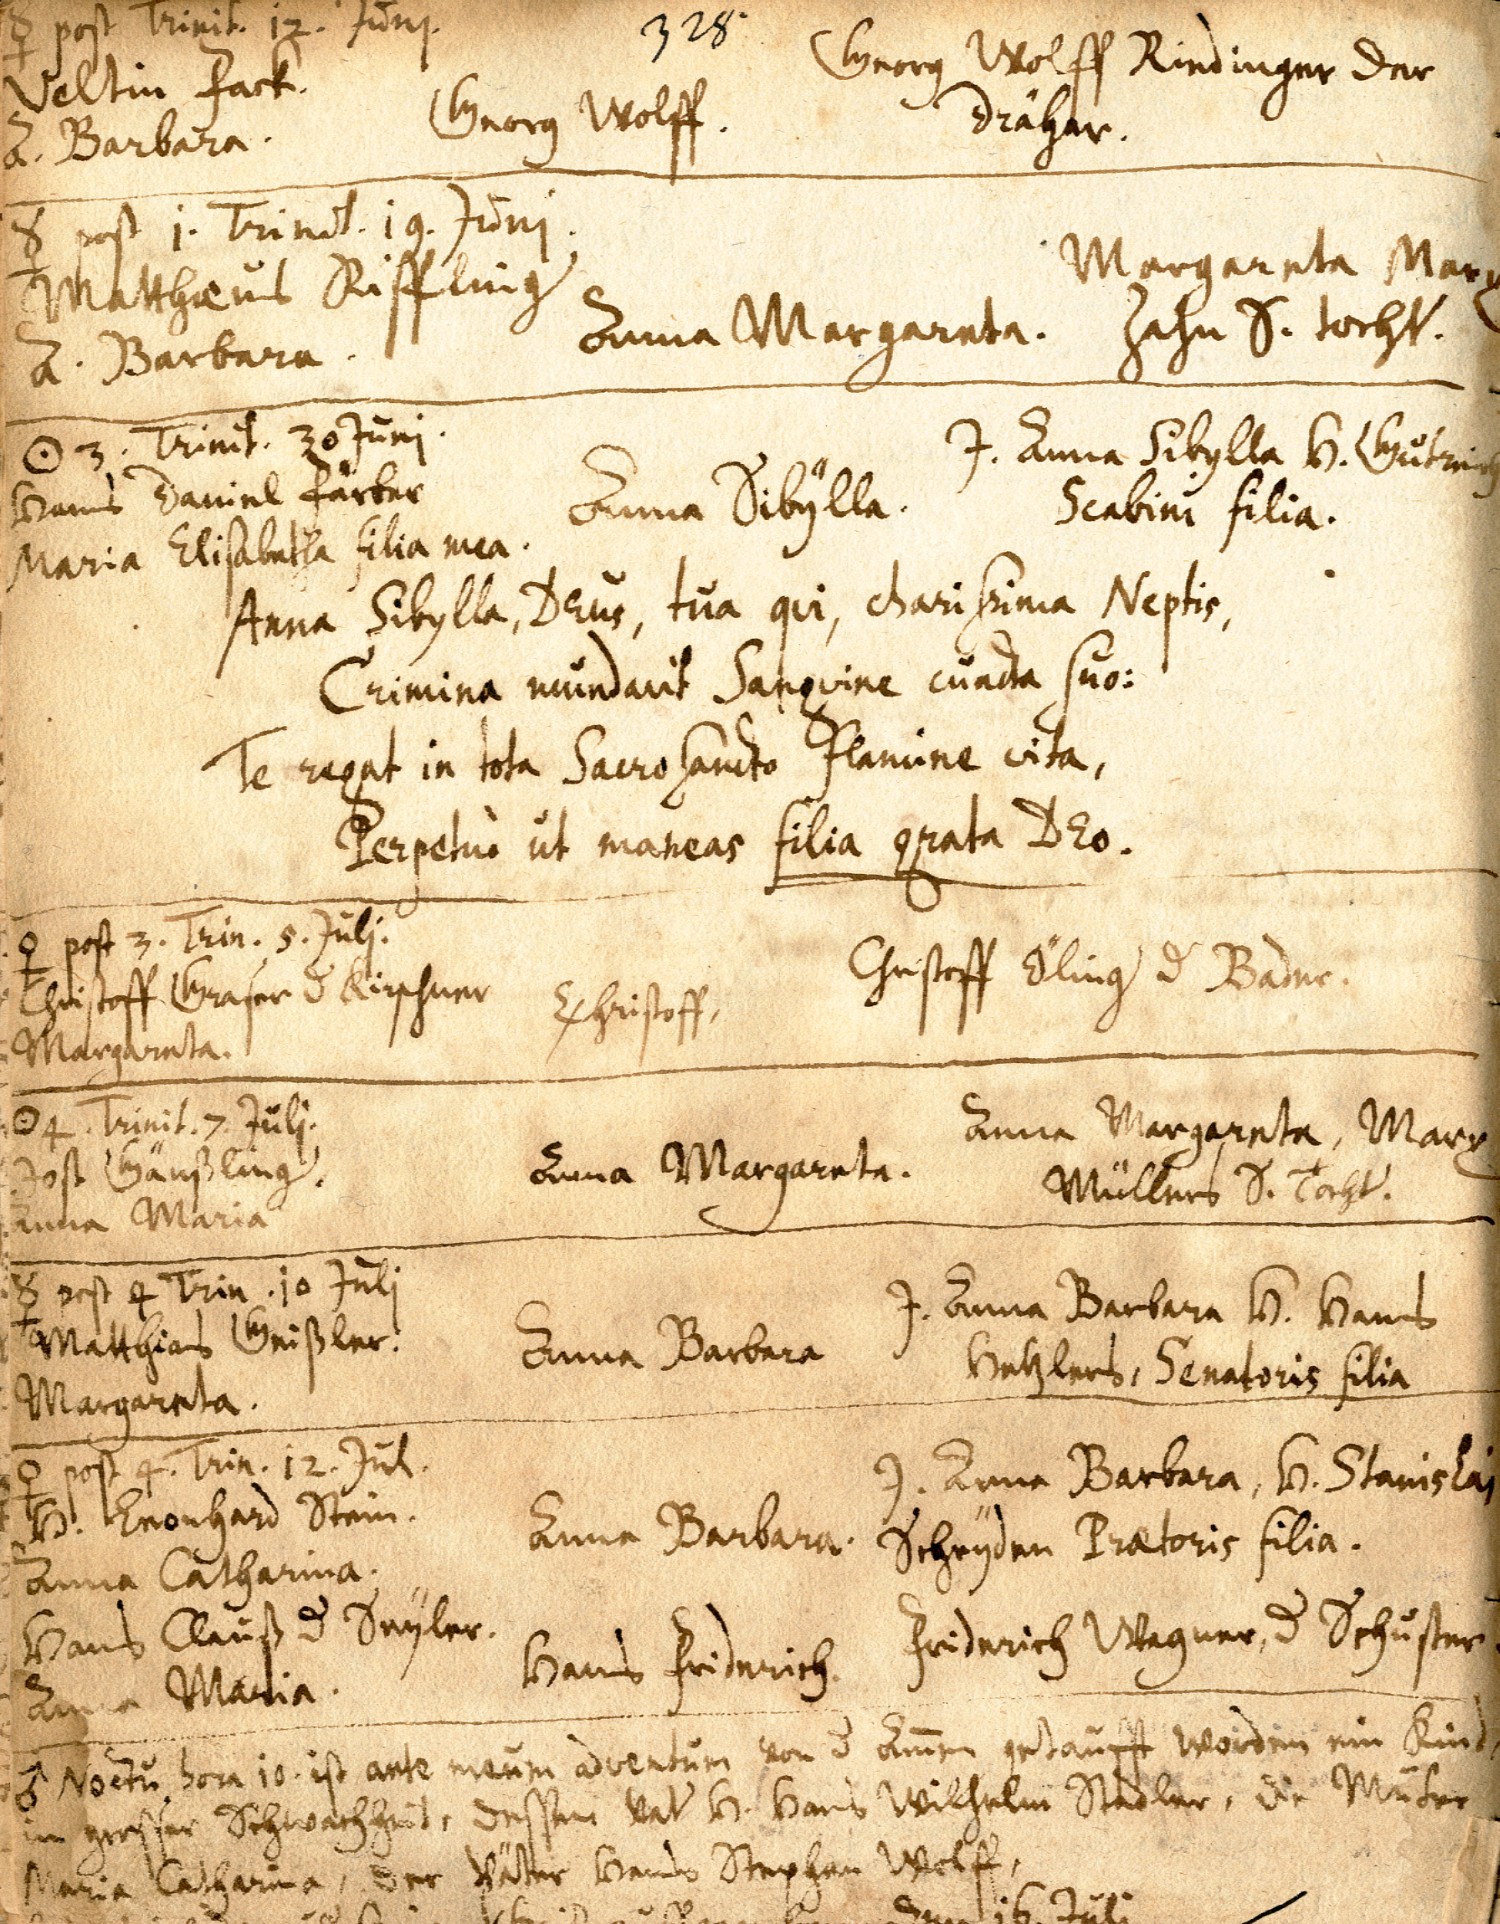 328.
☿ post Trinit. 12. Juni.
Veltin Fack.
A. Barbara.
Georg Wolff.
Georg Wolff Riedinger der
Dräher.
☿ post 1. Trinit. 19. Junj.
Matthæus Riffling
A. Barbara.
Anna Margareta.
Margareta Marx
Zahn S. tocht.
☉ 3. Trinit. 30 Junj.
Hans Daniel Färber
Maria Elisabetha filia mea.
Anna Sibÿlla.
J. Anna Sibylla H.
Scabini filia.
Anna Sibylla, DEus, tua qui, charissima Neptis,
Crimina mundavit Sanqvine cuncta suo:
Te regat in tota Sacrosancto Flamine vita,
Perpetuò ut maneas filia grata DEo.
♀ post 3. Trin. 5. Julj.
Christoff Graser d Kirschner
Margareta.
Christoff,
Christoff Öling d Bader.
☉ 4. Trinit. 7. Julj.
Jost Gänßling.
Anna Maria
Anna Margareta.
Anna Margareta, Marx
Müllers S. Tocht.
☿ post 4 Trin. 10 Julj
Matthias Geißler.
Margareta.
Anna Barbara
J. Anna Barbara H. Hans
Hetzlers, Senatoris filia
♀ post 4. Trin. 12. Jul.
H. Leonhard Stein.
Anna Catharina.
Anna Barbara.
J. Anna Barbara, H. Stanislai
Scheÿden Prætoris filia.
Hans Clauß d Seÿler.
Anna Maria.
Hans Friderich.
Friderich Wagner, d Schuster.
♂ Noctu hora 10. ist ante meum adventum von d Amen getaufft worden ein Kind,
in grosser Schwachheit, dessen Vat H. Hans Wilhelm Stadler, die Muter
Maria Catharina, der Väter Hans Stephan Wolff,
den 16. Julj